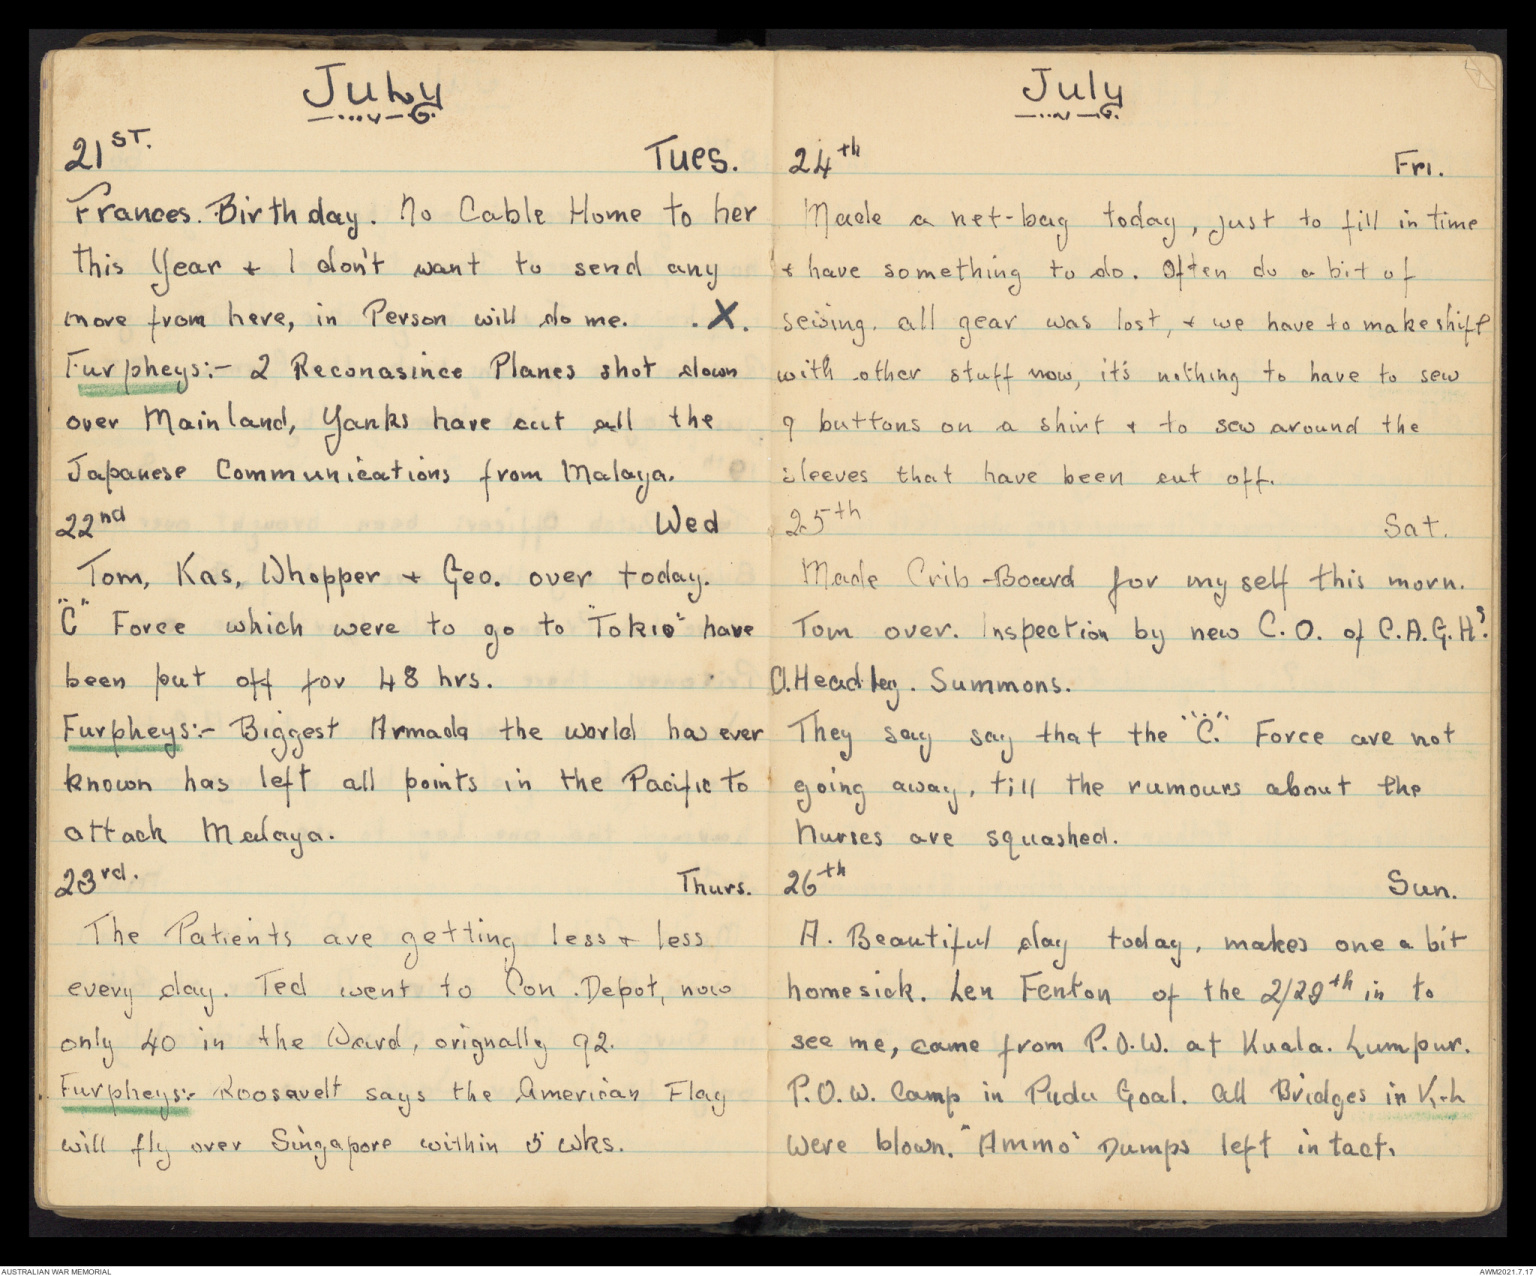 July
21ST. Tues.
Frances. Birthday. No Cable Home to her
this Year + I don't want to send any
more from here, in Person will do me. .X.
Furpheys:- 2 Reconasince Planes shot down
over Mainland, Yanks have cut all the
Japanese Communications from Malaya.
22nd Wed
Tom, Kas, Whopper + Geo. over today.
"C" Force which were to go to "Tokio" have
been put off for 48 hrs.
Furpheys:- Biggest Armada the world has ever
known has left all points in the Pacific to
attack Malaya.
23rd. Thurs.
The Patients are getting less + less
every day. Ted went to Con. Depot, now
only 40 in the Ward, orignally 92.
Furpheys:- Roosavelt says the American Flag
will fly over Singapore within 5 wks.
July
24th Fri.
Made a net-bag today, just to fill in time
+ have something to do. Often do a bit of
sewing. all gear was lost, + we have to makeshift
with other stuff now, it's nothing to have to sew
9 buttons on a shirt + to sew around the
sleeves that have been cut off.
25th Sat.
Made Crib-Board for myself this morn.
Tom over. Inspection by new C.O. of C.A.G.H's.
O. Headley. Summons.
They say say that the "C." Force are not
going away, till the rumours about the
Nurses are squashed.
26th Sun.
A. Beautiful day today, makes one a bit
homesick. Len Fenton of the 2/29th in to
see me, came from P.O.W. at Kuala. Lumpur.
P.O.W. Camp in Pudu Goal. All Bridges in K-L
were blown. "Ammo" Dumps left intact.
AUSTRALIAN WAR MEMORIAL
AWM2021.7.17